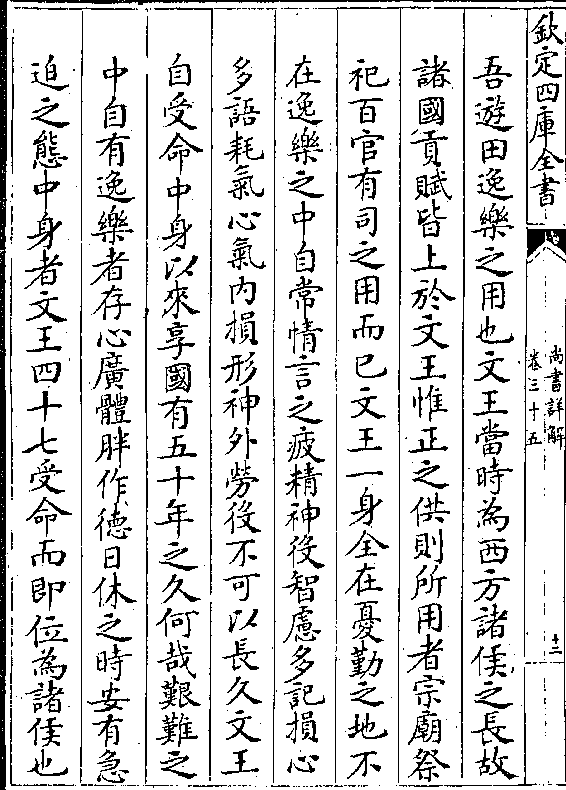 欽定四庫全書
尚書詳解
卷三十五
十二
吾遊田逸樂之用也文王當時為西方諸侯之長故
諸國貢賦皆上於文王惟正之供則所用者宗廟祭
祀百官有司之用而已文王一身全在憂勤之地不
在逸樂之中自常情言之疲精神役智慮多記損心
多語耗氣心氣內損形神外勞後不可以長久文王
自受命中身以來享國有五十年之久何哉艱難之
中自有逸樂者存心廣體胖作德日休之時安有急
迫之態中身者文王四十七受命而即位為諸侯也